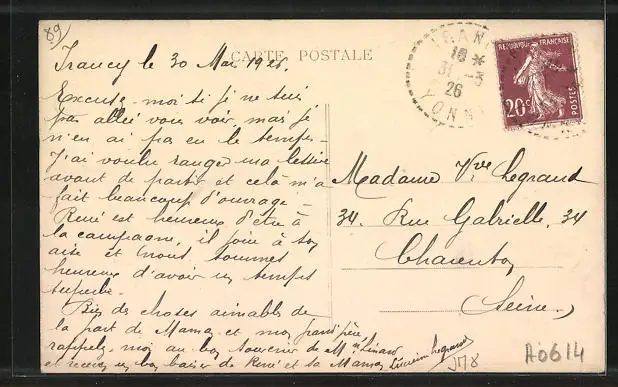 89
CARTE POSTALE
Irancy le 30 Mai 1926.
Excuse-moi si je ne suis
pas allée vous voir, mais je
n'en ai pas eu le temps-
J'ai voulu ranger ma lessive
avant de partir et celà m'a
fait beaucoup d'ouvrage-
René est heureux d'être à
la campagne, il joue à son
aise et nous sommes
heureux d'avoir un temps
superbe.
Bien des choses aimables de
la part de Maman et mon grand père
rappelez-moi au bon souvenir de Mme
et recevez un bon baiser de René et sa Maman
Lucienne Legrand
IRAN
18 *
31 -5
26
YONNE
REPUBLIQUE FRANÇAISE
20c
POSTES
Madame Vve Legrand
34. Rue Gabrielle, 34
Charenton
Seine
A0614